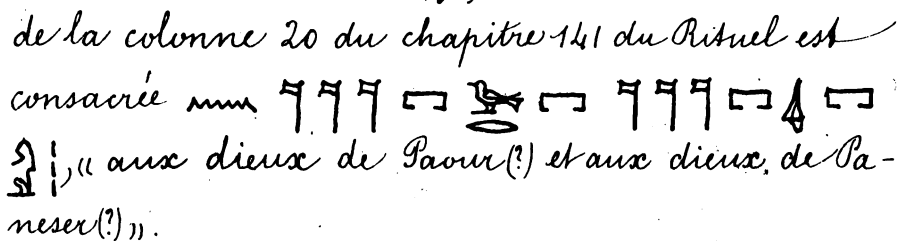 de la colonne 20 du chapitre 141 du Rituel est
consacrée 𓈖 𓊹𓊹𓊹 𓉐 𓅨𓂋 𓉐 𓊹𓊹𓊹 𓉐 𓊮 𓉐
, « aux dieux de Paour(?) et aux dieux, de Pa-
neser(?) ».